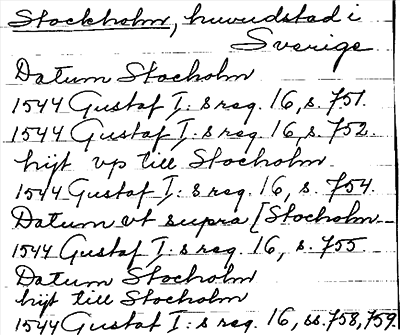 Stockholm, huvudstad i
Sverige
Datum Stocholm
1544 Gustaf I:s reg. 16, s. 751.
1544 Gustaf I:s reg. 16, s. 752.
hijt vp till Stocholm
1544 Gustaf I:s reg. 16, s. 754.
Datum vt supra [Stocholm
1544 Gustaf I:s reg. 16, s. 755
Datum Stocholm
hijt till Stocholm
1544 Gustaf I:s reg. 16, ss. 758, 759